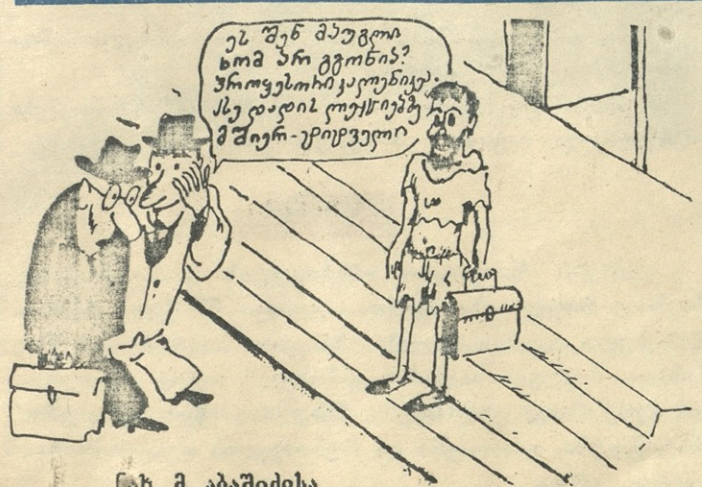 ეს შენ მაუგლი
ხომ არ გგონია?
პროფესორი კალენიკე.
ასე დადის ლექციებზე
მშიერ-ტიტველი
ნახ. მ. აბაშიძისა